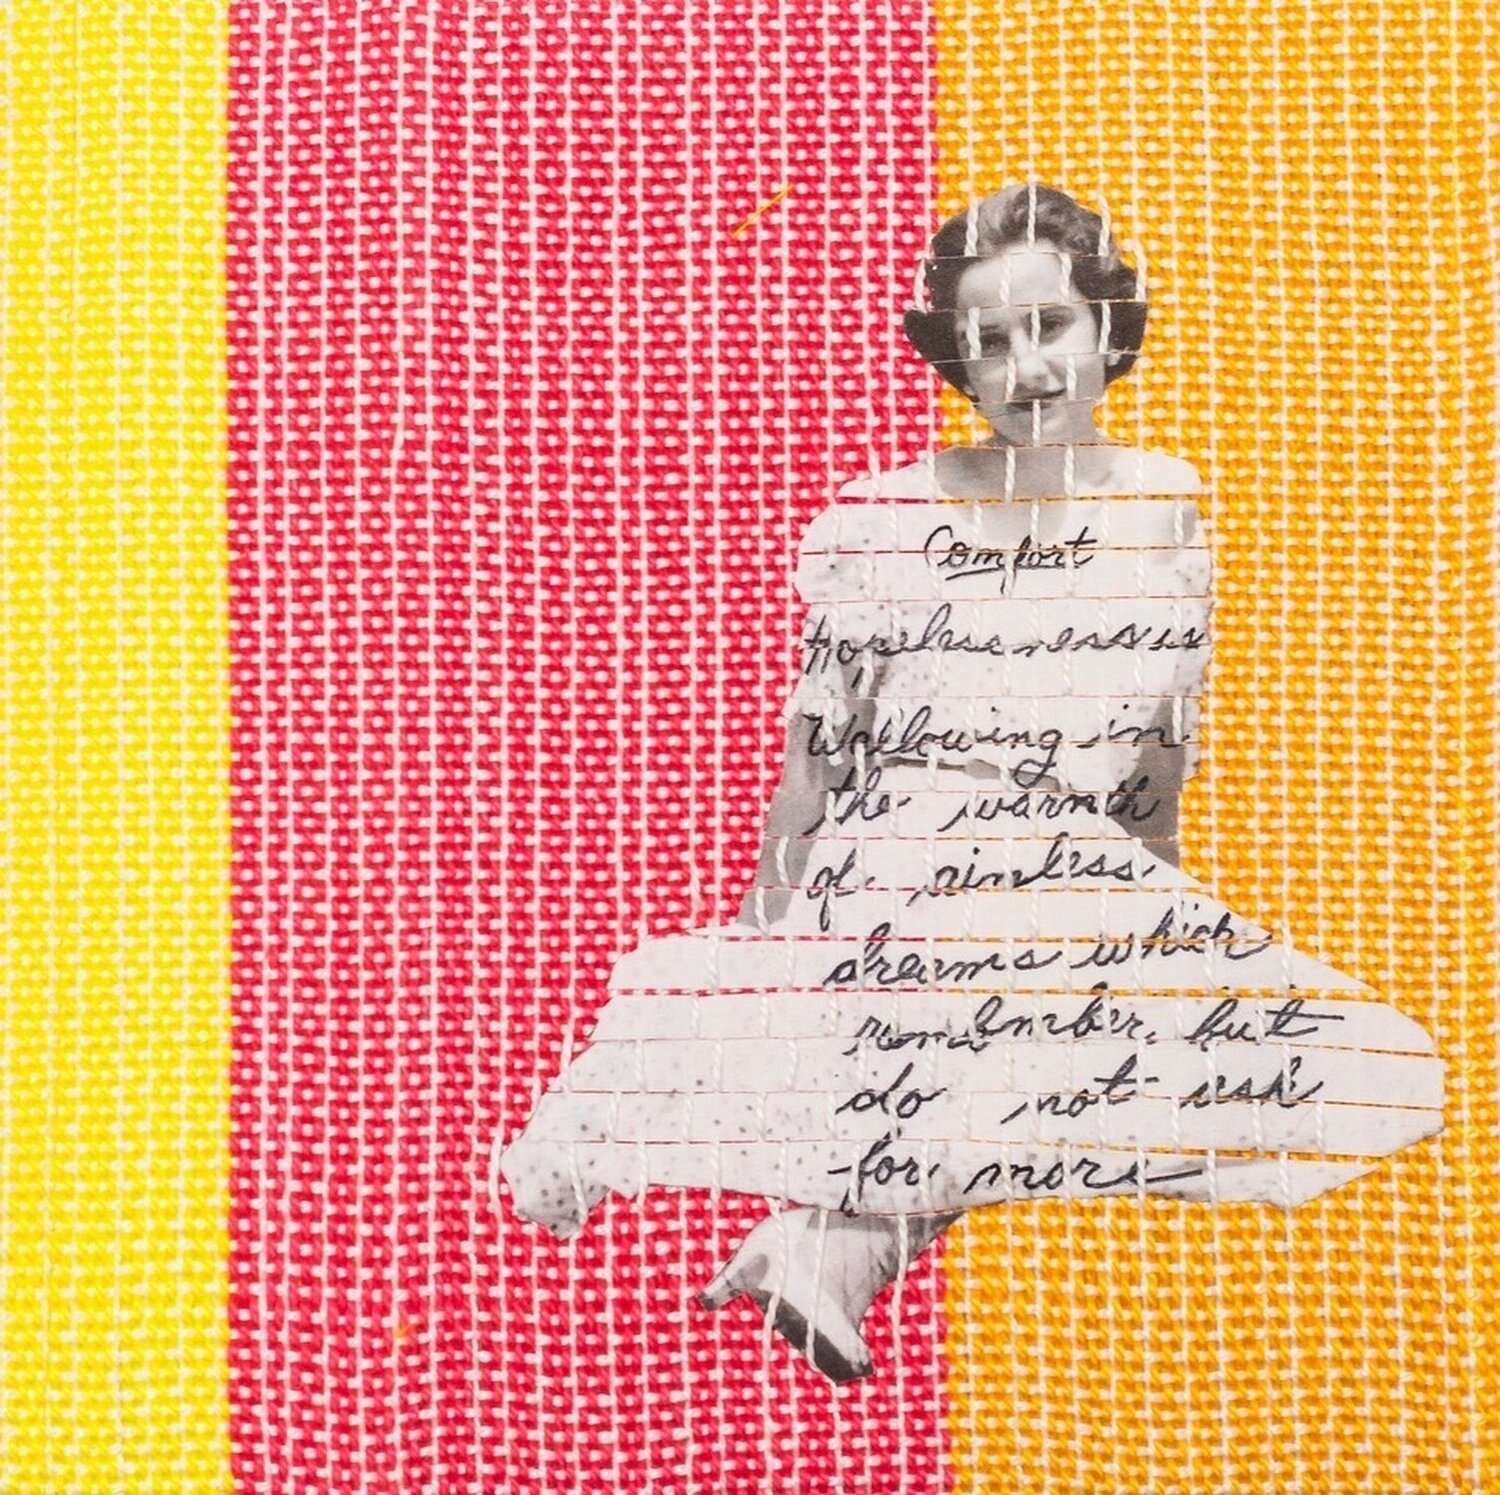 Comfort
Hopelessness is
Wallowing in
the warmth
of aimless
dreams which
remember, but
do not ask
for more